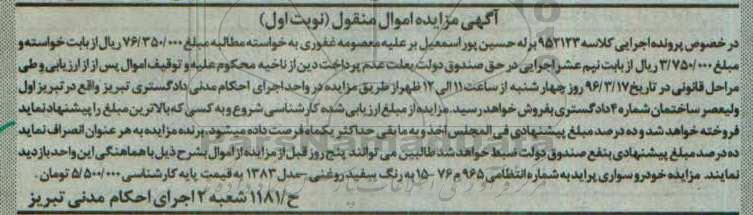 آگهی مزایده اموال منقول (نوبت اول)
در خصوص پرونده اجرایی کلاسه ۹۵۳۱۲۳ برله حسین پور اسمعیل بر علیه معصومه غفوری به خواسته مطالبه مبلغ ۷۶/۳۵۰/۰۰۰ ریال از بابت خواسته و
مبلغ ۳/۷۵۰/۰۰۰ ریال از بابت نیم عشر اجرایی در حق صندوق دولت بعلت عدم پرداخت دین از ناحیه محکوم علیه و توقیف اموال پس از از ارزیابی و طی
مراحل قانونی در تاریخ ۹۶/۳/۱۷ روز چهار شنبه از ساعت ۱۱ الی ۱۲ ظهر از طریق مزایده در واحد اجرای احکام مدنی دادگستری تبریز واقع در تبریز اول
ولیعصر ساختمان شماره ۴ دادگستری بفروش خواهد رسید. مزایده از مبلغ ارزیابی شده کارشناسی شروع و به کسی که بالاترین مبلغ را پیشنهاد نماید
فروخته خواهد شد و ده درصد مبلغ پیشنهادی فی المجلس اخذ و به مابقی حداکثر یکماه فرصت داده میشود. برنده مزایده به هر عنوان انصراف نماید
ده درصد مبلغ پیشنهادی بنفع صندوق دولت ضبط خواهد شد طالبین می توانند پنج روز قبل از مزایده از اموال بشرح ذیل با هماهنگی این واحد بازدید
نمایند. مزایده خودرو سواری پراید به شماره انتظامی ۹۶۵ م ۷۶ -۱۵ به رنگ سفید روغنی -مدل ۱۳۸۳ به قیمت پایه کارشناسی ۵/۵۰۰/۰۰۰ تومان.
ح/۱۱۸۱ شعبه ۲ اجرای احکام مدنی تبریز